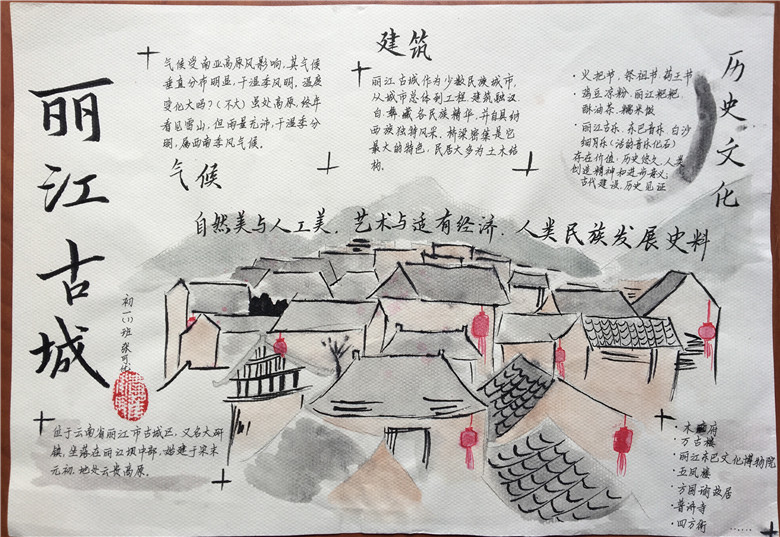 丽江古城
初一(1)班
气候受南亚高原风影响,其气候
垂直分布明显,干湿季风明,温度
变化大吗?(不大)虽处高原,终年
看见雪山,但雨量充沛,干湿季分
明,属西南季风气候。
气候
建筑
丽江古城作为少数民族城市,
从城市总体到工程.建筑融汉.
白.彝.藏各民族精华,并自具纳
西族独特风采,桥梁密集是它
最大的特色,民居大多为土木结
构。
历史文化
·火把节,祭祖节,药王节
·鸡豆凉粉,丽江粑粑,
酥油茶,糯米饭
·丽江古乐 东巴音乐 白沙
细乐(活的音乐化石)
存在价值:历史悠久,人类
创造精神和进步意义,
古代建设,历史见证
自然美与人工美,艺术与适有经济.人类民族发展史料
位于云南省丽江市古城区,又名大研
镇,坐落在丽江坝中部,始建于宋末
元初.地处云贵高原。
·木府
·万古楼
·丽江东巴文化博物院
·五凤楼
·方国瑜故居
·普济寺
·四方街
……